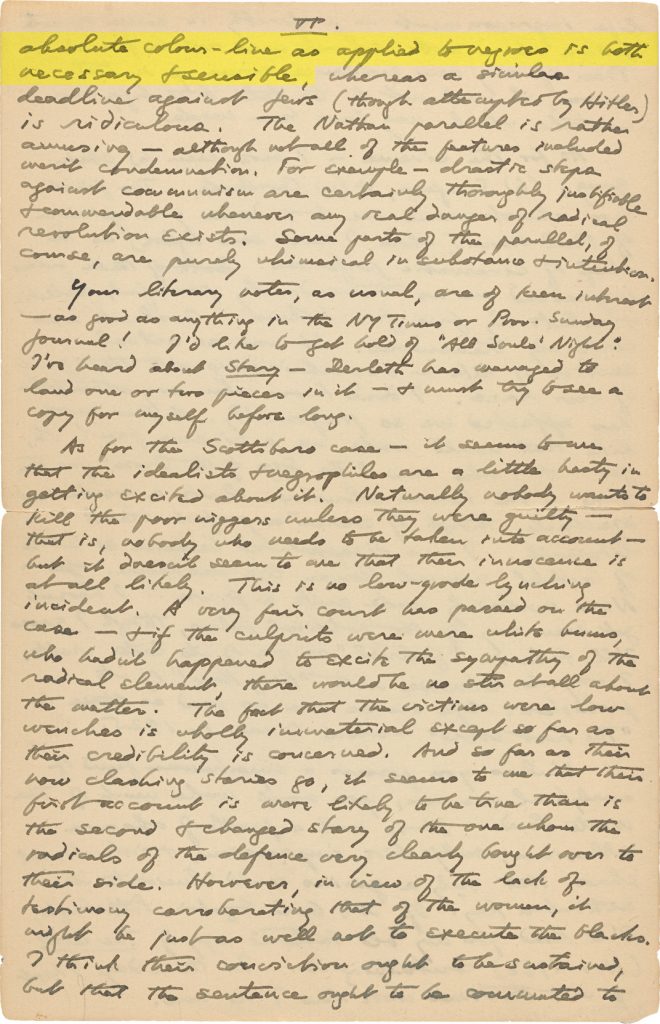 VI.
absolute colour-line as applied to negroes is both
necessary & sensible, whereas a similar
deadline against Jews (though attempted by Hitler)
is ridiculous. The Nathan parallel is rather
amusing — although not all of the features included
merit condemnation. For example — drastic steps
against communism are certainly thoroughly justifiable
& commendable whenever any real danger of radical
revolution exists. Some parts of the parallel, of
course, are purely whimsical in substance & intention.
Your literary notes, as usual, are of keen interest
— as good as anything in the NY Times or Prov. Sunday
Journal! I'd like to get hold of "All Souls' Night".
I've heard about Story — Derleth has managed to
land one or two pieces in it — & must try to see a
copy for myself before long.
As for the Scottsboro case — it seems to me
that the idealists & negrophiles are a little hasty in
getting excited about it. Naturally nobody wants to
kill the poor niggers unless they were guilty —
that is, nobody who needs to be taken into account —
but it doesn't seem to me that their innocence is
at all likely. This is no low-grade lynching
incident. A very fair court has passed on the
case — & if the culprits were mere white bums,
who hadn't happened to excite the sympathy of the
radical element, there would be no stir at all about
the matter. The fact that the victims were low
wenches is wholly immaterial except so far as
their credibility is concerned. And so far as their
now clashing stories go, it seems to me that their
first account is more likely to be true than is
the second & changed story of the one whom the
radicals of the defence very clearly bought over to
their side. However, in view of the lack of
testimony corroborating that of the women, it
might be just as well not to execute the blacks.
I think their conviction ought to be sustained,
but that the sentence ought to be commuted to